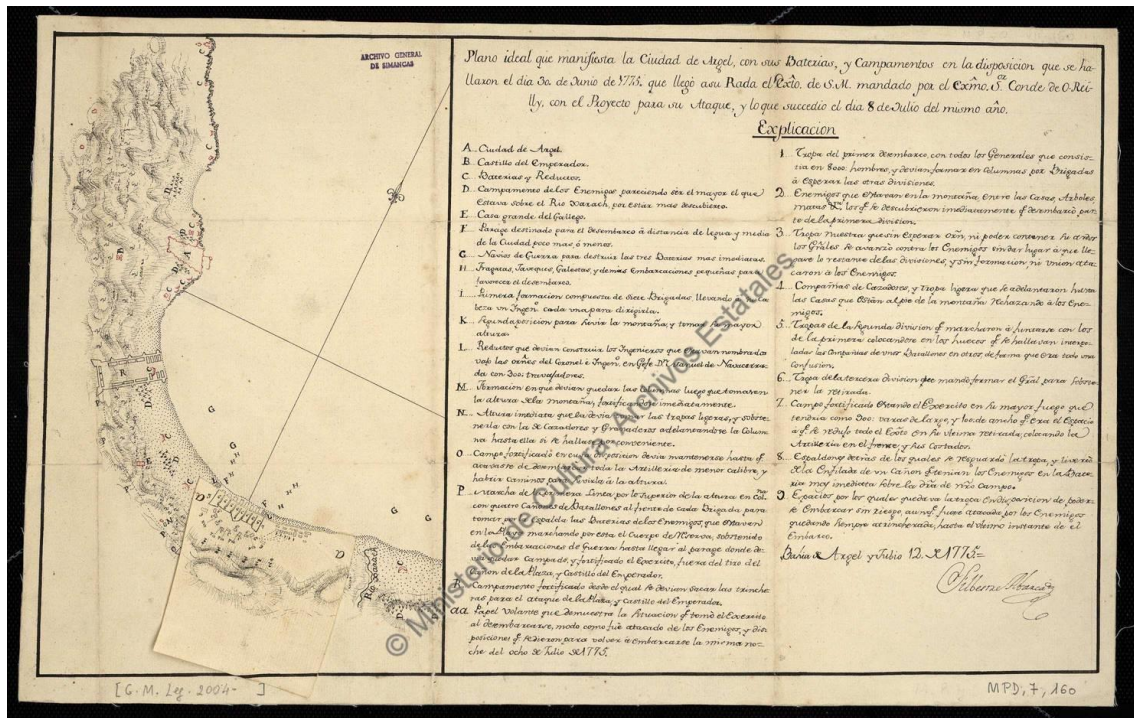 ARCHIVO GENERAL
DE SIMANCAS
Plano ideal que manifiesta la Ciudad de Argel, con sus Baterias, y Campamentos en la disposicion que se ha-
llaron el dia 30. de Junio de 1775. que llegó a su Rada el Exto. de S.M. mandado por el Exmo. Sor. Conde de O Rei-
lly, con el Proyecto para su Ataque, y lo que succedio el dia 8 de Julio del mismo año.
Explicacion
A... Ciudad de Argel.
B... Castillo del Emperador.
C... Baterias y Reductos.
D... Campamento de los Enemigos pareciendo sér el mayor el que
estava sobre el Rio Xarach, por estár mas descubierto.
E... Casa grande del Gallego.
F... Parage destinado para el desembarco à distancia de legua y media
de la Ciudad poco mas, ó menos.
G... Navios de Guerra para destruir las tres Baterias mas imediatas.
H... Fragatas, Javeques, Galeotas, y demás Embarcaciones pequeñas para
favorecer el desembarco.
I... Primera formacion compuesta de siete Brigadas, llevando à su ca-
beza un Ingeno. cada una para dirigirla.
K... Segunda posicion para subir la montaña, y tomar su mayor
altura.
L... Reductos que devian construir los Ingenieros que estavan nombrados
vajo las ordñes del Coronel è Ingeno. en Gefe Dn. Manuel de Navacerra-
da con 300. travajadores.
M... Formacion en que devian quedar las Columnas luego que tomasen
la altura de la montaña, fortificandose imediatamente.
N... Altura imediata que devian las tropas ligeras, y sobste-
nerla con la de Cazadores y Granaderos adelantandose la Colum-
na hasta ella si se hallase por conveniente.
O... Campo fortificado en cuya disposicion devia mantenerse hasta q.
acavase de desembarcar toda la Artilleria de menor calibre, y
habrir caminos para subirla à la altura.
P... Marcha de la primera Linea por lo superior de la altura en Col.
con quatro Cañones de Batallones al frente de cada Brigada para
tomar por la Espalda las Baterias de los Enemigos que estaven
en la Playa marchando por esta el Cuerpo de Reserva, sobstenido
de las Embarcaciones de Guerra hasta llegar al parage donde de-
via quedar Campado, y fortificado el Exercito, fuera del tiro del
Cañon de la Plaza, y Castillo del Emperador.
Campamento fortificado desde el qual se devian sacar las trinche-
ras para el ataque de la Plaza, y Castillo del Emperador.
aa Papel Volante que demuestra la situacion q. tomó el Exercito
al desembarcarse, modo como fué atacado de los Enemigos, y dis-
posiciones q. se dieron para volver à embarcarse la misma no-
che del ocho de Julio de 1775.
1... Tropa del primer desembarco, con todos los Generales que consis-
tia en 8000. hombres, y devian formar en Columnas por Brigadas
à esperar las otras divisiones.
2... Enemigos que estavan en la montaña, entre las Casas, Arboles,
matas &c. los q. se descubrieron imediatamente q. desembarcó par-
te de la primera division.
3... Tropa nuestra que sin esperar orñ, ni poder contener su ardor
los Gñales se avanzó contra los Enemigos sin dar lugar à que lle-
gase lo restante de las divisiones, y sin formacion ni union ata-
caron à los Enemigos.
4... Compañias de Cazadores, y tropa ligera que se adelantaron hasta
las Casas que están al pie de la montaña rechazando à los Ene-
migos.
5... Tropas de la segunda division q. marcharon à juntarse con los
de la primera colocandose en los huecos q. se hallavan interpo-
ladas las Compañias de unos Batallones en otros de forma que era todo una
confusion.
6... Tropa de la tercera division que mandó formar el Gñal para sobste-
ner la retirada.
7... Campo fortificado estando el Exercito en su mayor fuego que
tendria como 300. varas de largo, y 100. de ancho q. era el Espacio
à q. se redujo todo el Exto en su ultima retirada, colocando la
Artilleria en el frente, y sus Costados.
8... Espaldones detrás de los quales se resguardó la tropa, y livertó
de la Enfilada de un Cañon q. tenian los Enemigos en la Bate-
ria mas imediata sobre la dra de nro Campo.
9... Espacios por los quales quedava la tropa en disposicion de poder-
se Embarcar sin riesgo, aunq. fuese atacado por los Enemigos
quedando siempre atrincherada, hasta el ultimo instante de el
Embarco.
Bahia de Argel y Julio 12. de 1775=
Silvestre Abarca
Rio Xarach
© Ministerio de Cultura. Archivos Estatales
[G.M. Leg. 2004- ]
MPD, 7, 160